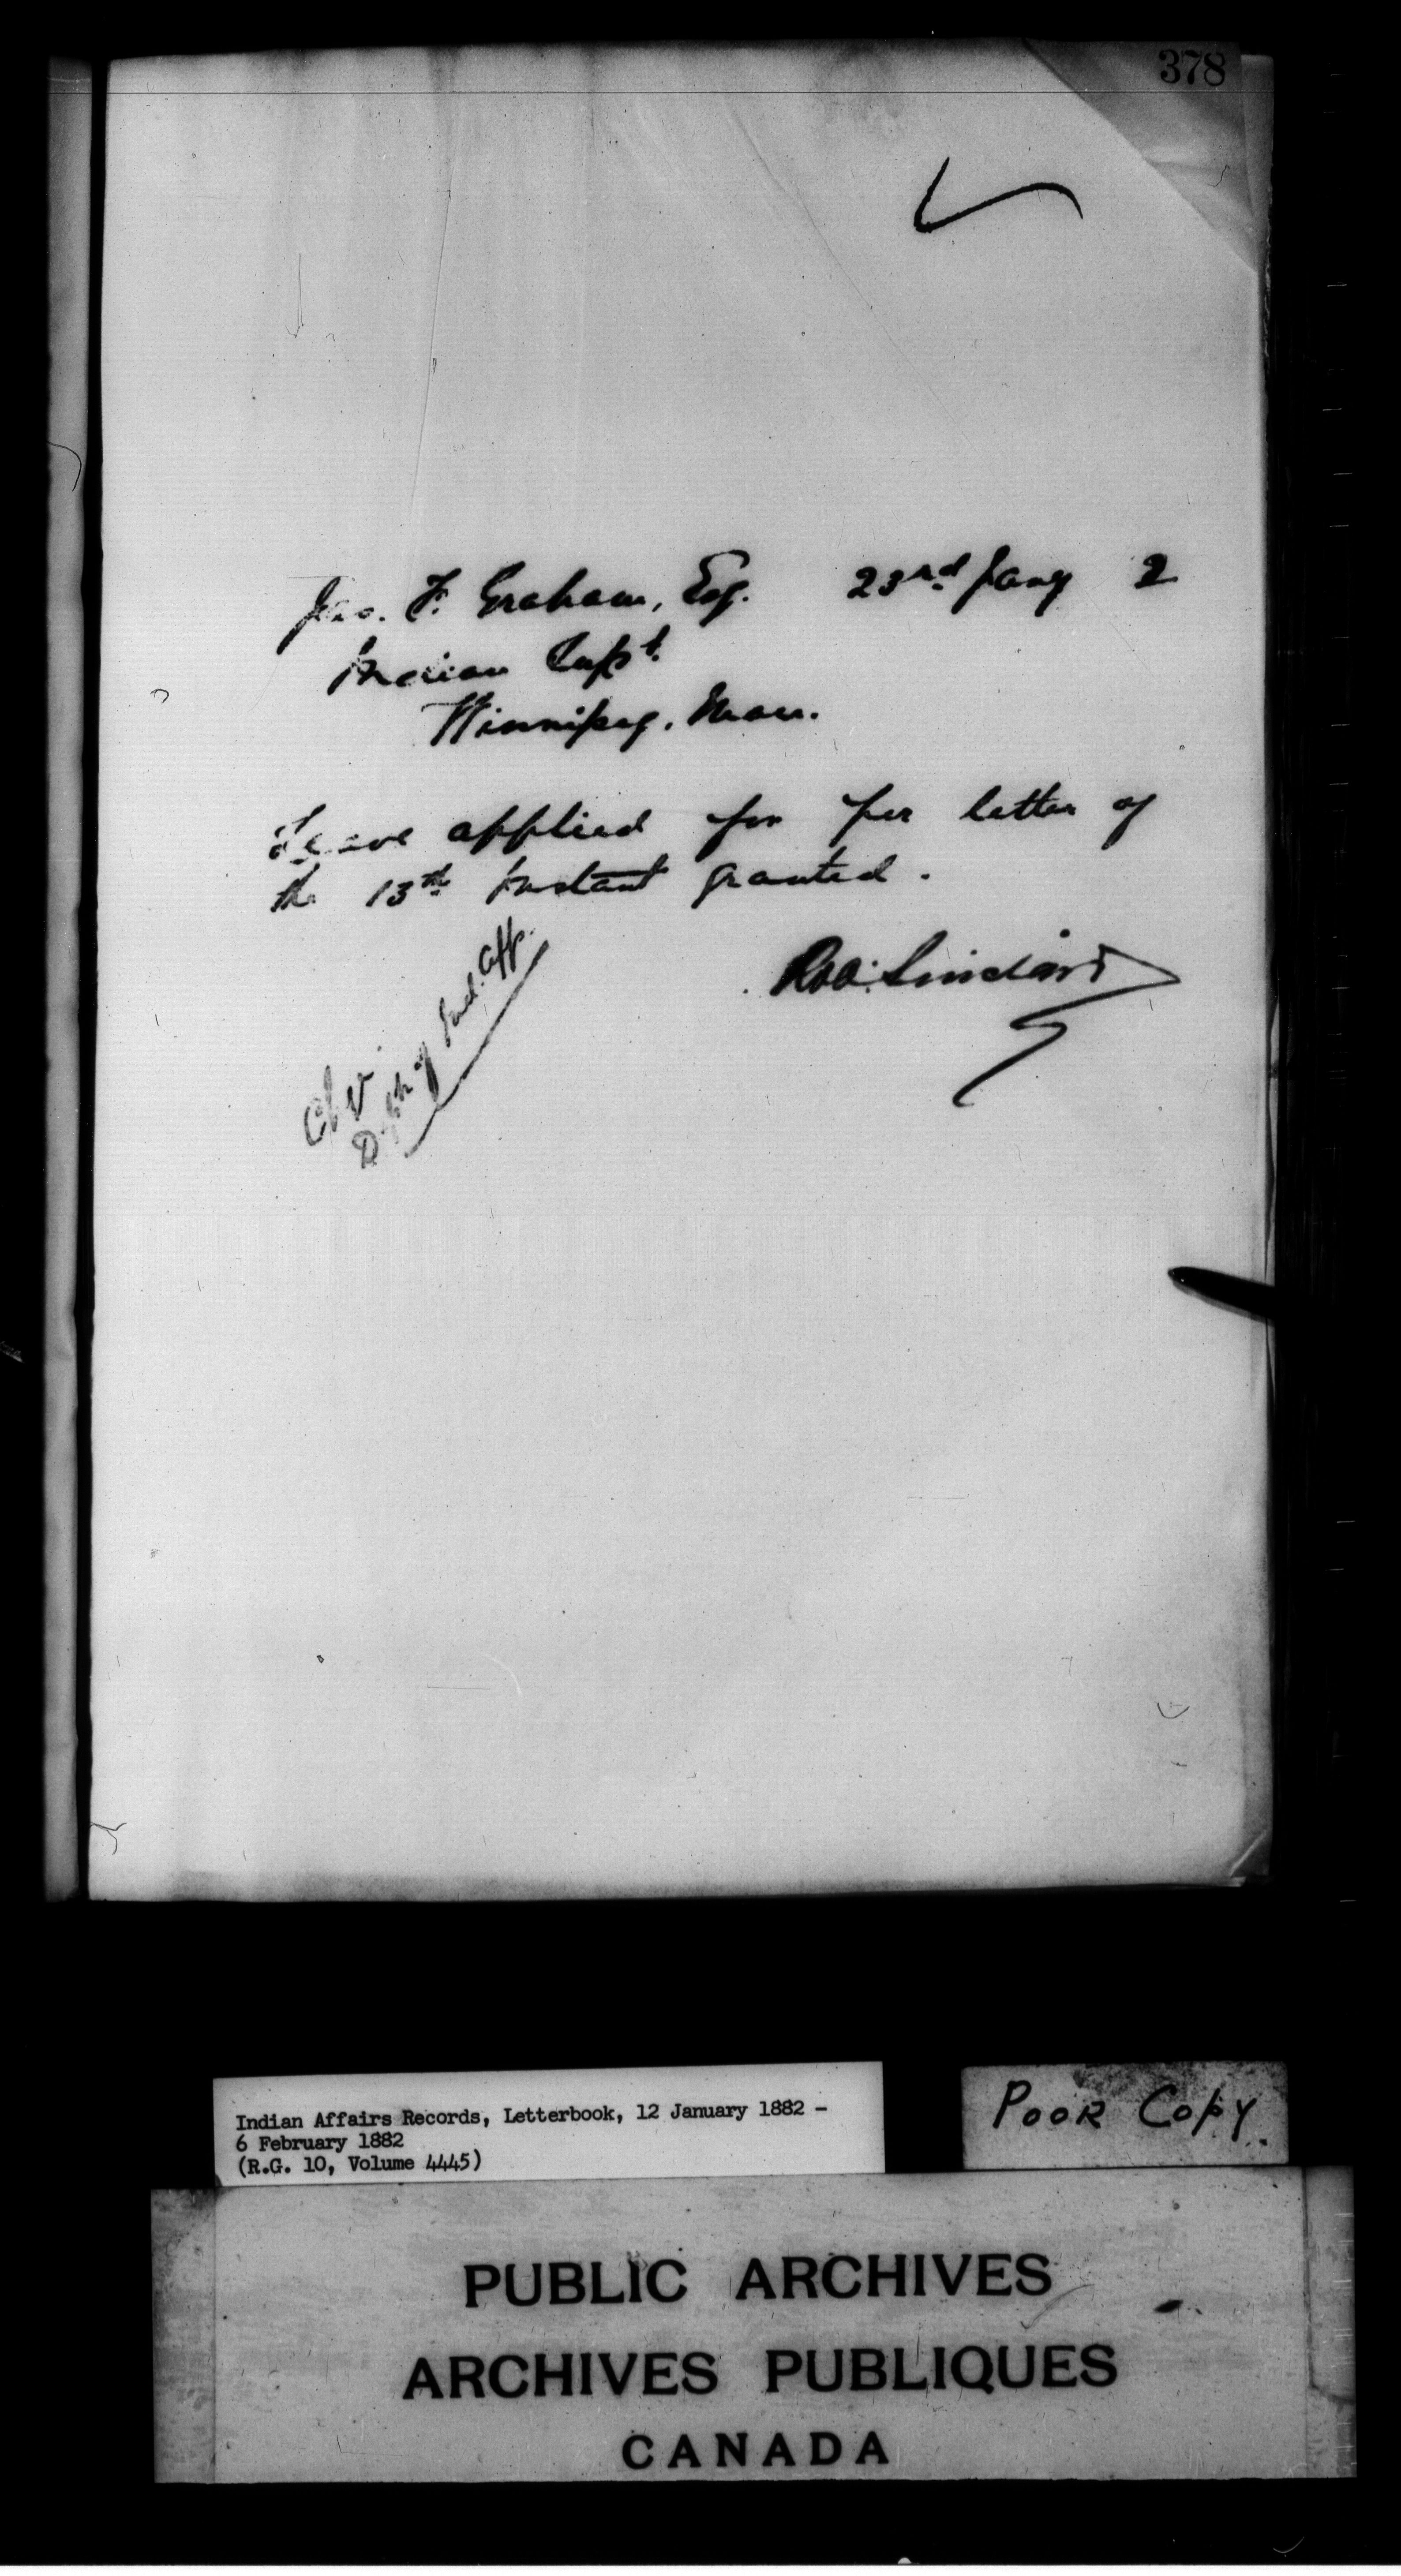 378
Jas. F. Graham, Esq. 23rd Jany 2
Indian Supt.
Winnipeg, Man.
Leave applied for per letter of
the 13th Instant granted.
Sinclair
Ch
Dept of Ind. Aff.
Indian Affairs Records, Letterbook, 12 January 1882 -
6 February 1882
(R.G. 10, Volume 4445)
POOR COPY.
PUBLIC ARCHIVES
ARCHIVES PUBLIQUES
CANADA